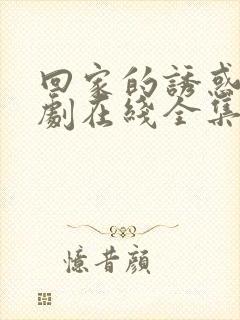 回家的誘惑
劇在綫全集
憶昔顔